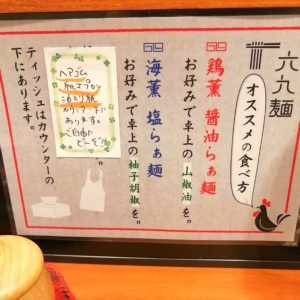 六六麺
オススメの食べ方
鶏薫 醤油らぁ麺
お好みで卓上の山椒油を。
海薫 塩らぁ麺
お好みで卓上の柚子胡椒を。
ヘアゴム
紙エプロン
油とり紙
カウンター下に
あります。
ご自由に
どーぞ!!
ティッシュはカウンターの
下にあります。